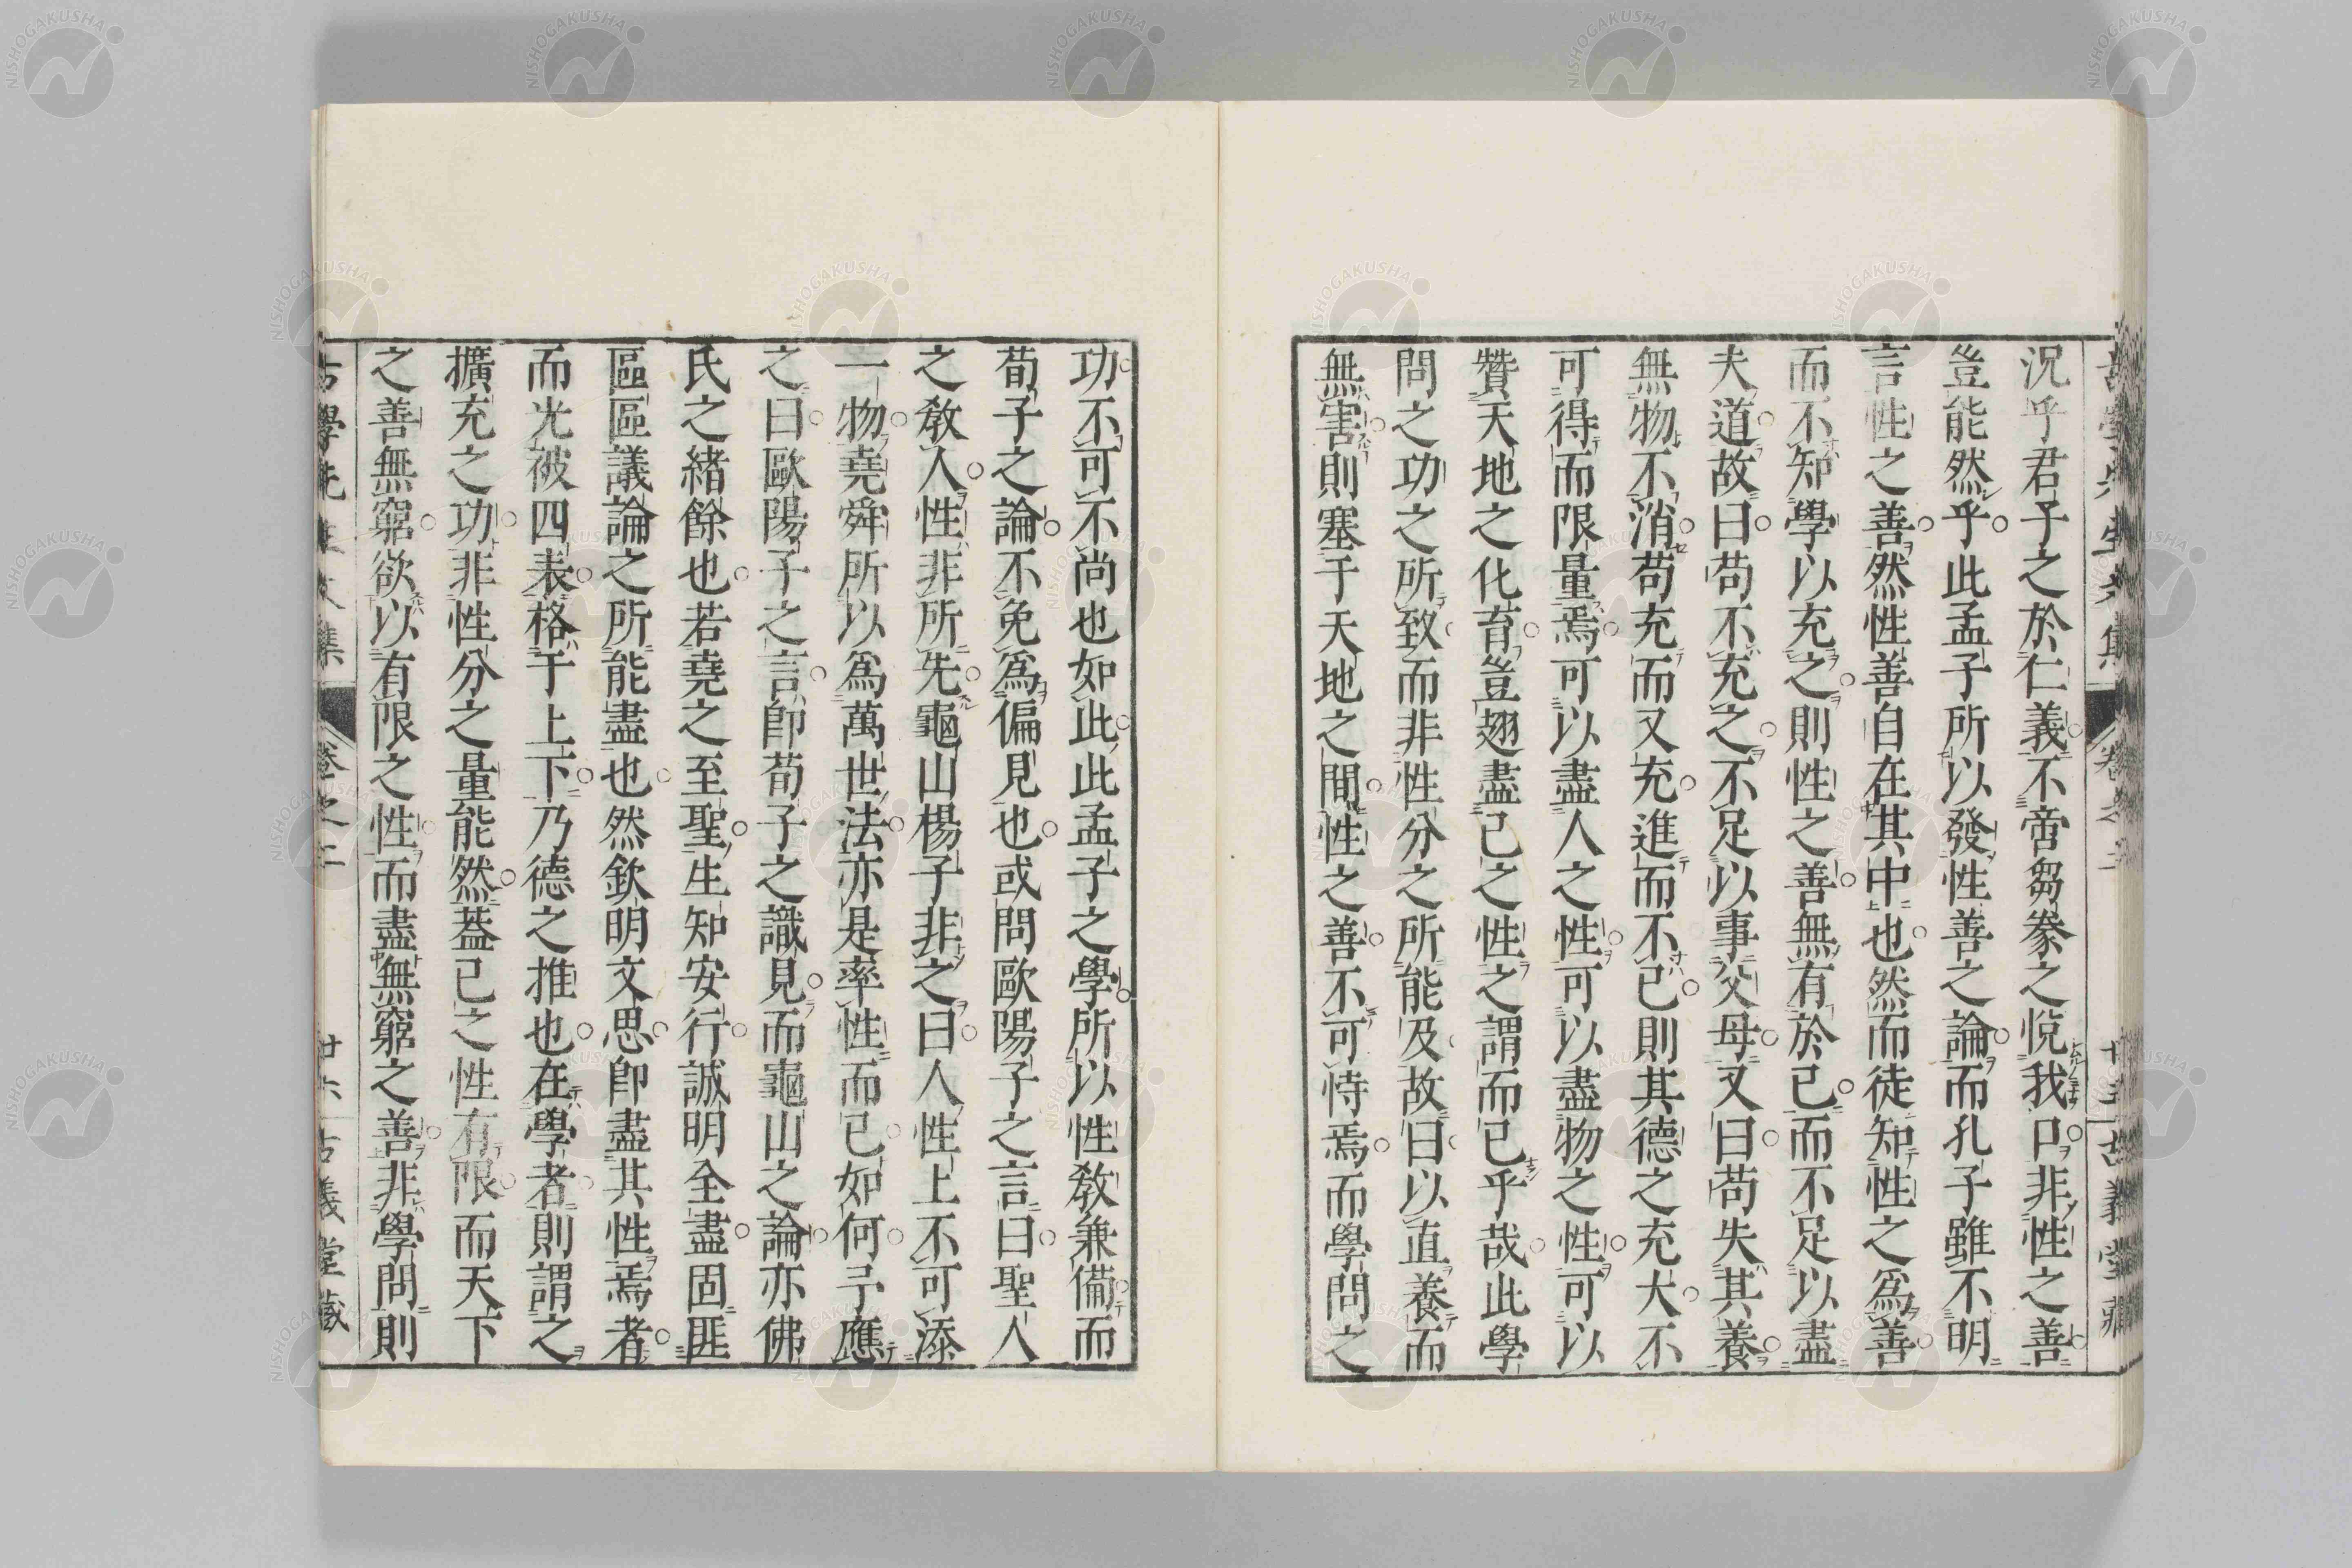 況乎君子之於仁義不啻芻豢之悅我口非性之善
豈能然乎此孟子所以發性善之論而孔子雖不明
言性之善然性善自在其中也然而徒知性之爲善
而不知學以充之則性之善無有於己而不足以盡
夫道故曰苟不充之不足以事父母又曰苟失其養
無物不消苟充而又充進而不已則其德之充大不
可得而限量焉可以盡人之性可以盡物之性可以
贊天地之化育豈翅盡己之性之謂而已乎哉此學
問之功之所致而非性分之所能及故曰以直養而
無害則塞于天地之間性之善不可恃焉而學問之
功不可不尚也如此此孟子之學所以性教兼備而
荀子之論不免爲偏見也或問歐陽子之言曰聖人
之教人性非所先龜山楊子非之曰人性上不可添
一物堯舜所以爲萬世法亦是率性而已如何予應
之曰歐陽子之言卽荀子之識見而龜山之論亦佛
氏之緒餘也若堯之至聖生知安行誠明全盡固匪
區區議論之所能盡也然欽明文思卽盡其性焉者
而光被四表格于上下乃德之推也在學者則謂之
擴充之功非性分之量能然蓋己之性有限而天下
之善無窮欲以有限之性而盡無窮之善非學問則
古學先生文集 卷之二 廿六 古義堂藏